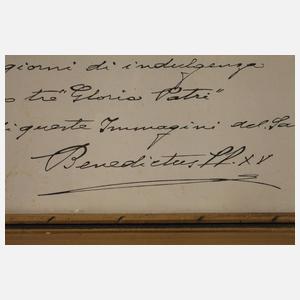 giorni di indulgenza
tre "Gloria Patri"
queste Immagini del Sa
Benedictus PP. XV